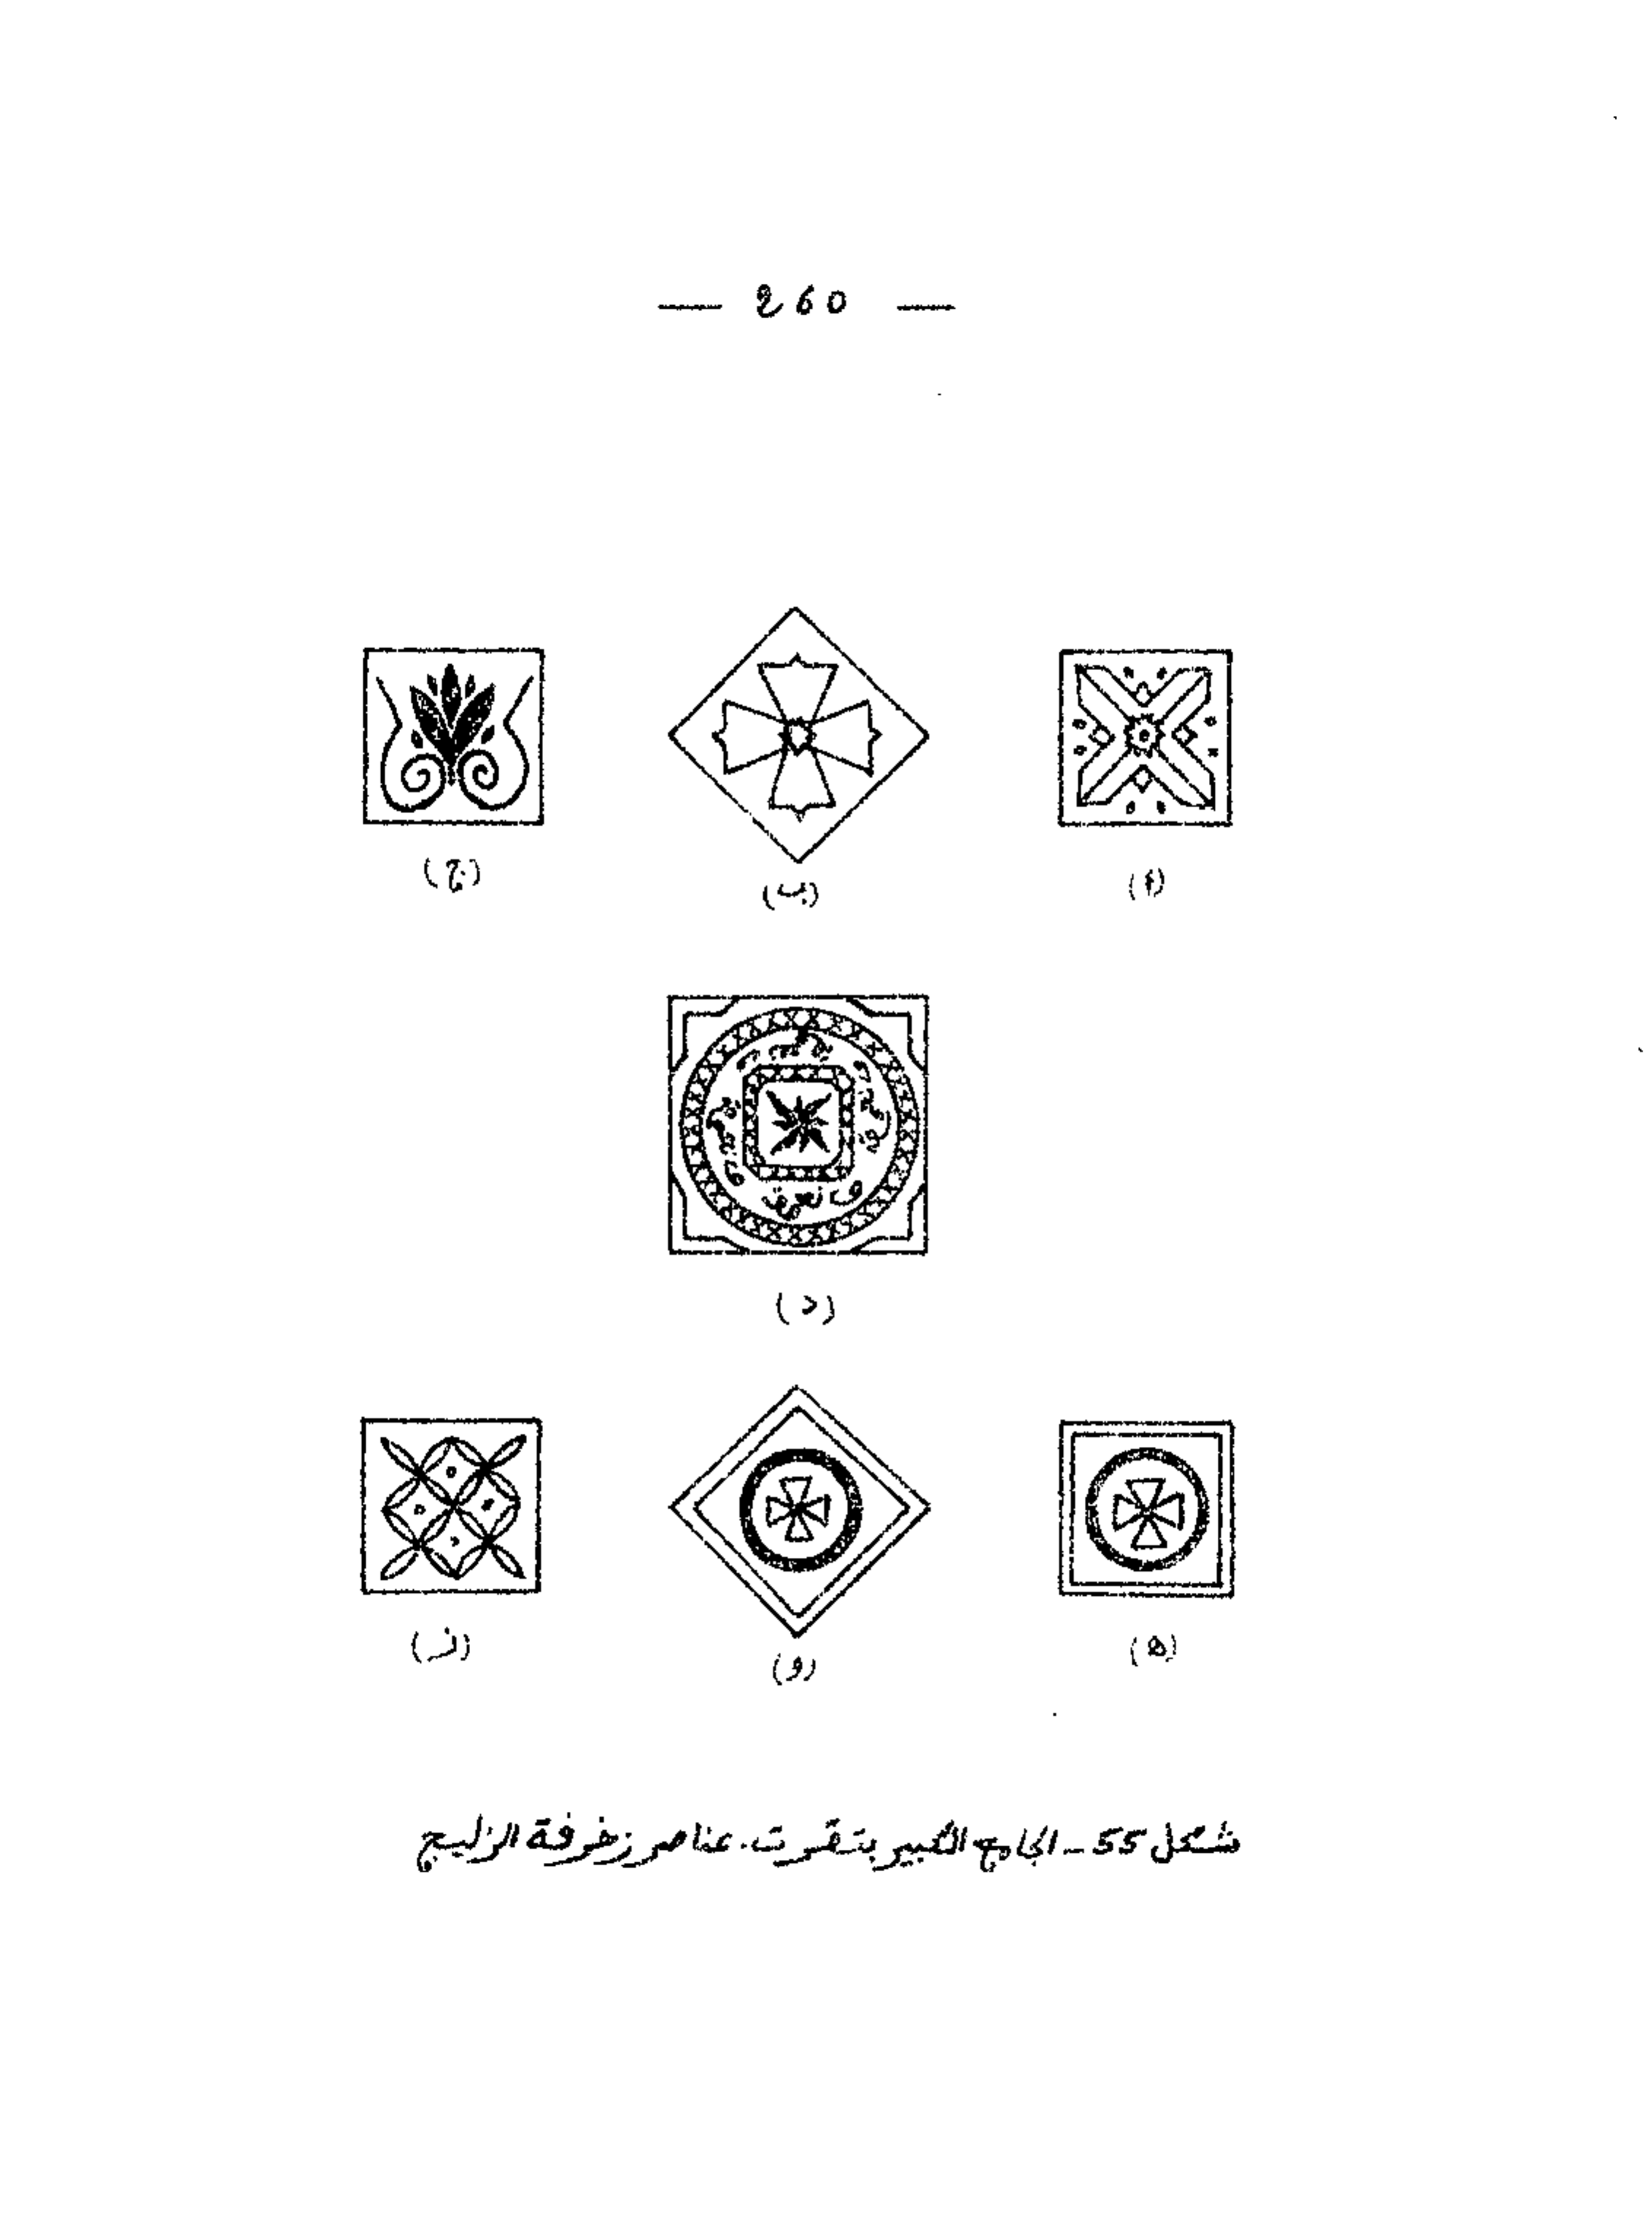 — 260 —
(أ) (ب) (ج)
(د)
(ه) (و) (ز)
شكل 55 - الجامع الكبير بتقرت. عناصر زخرفة الزليج